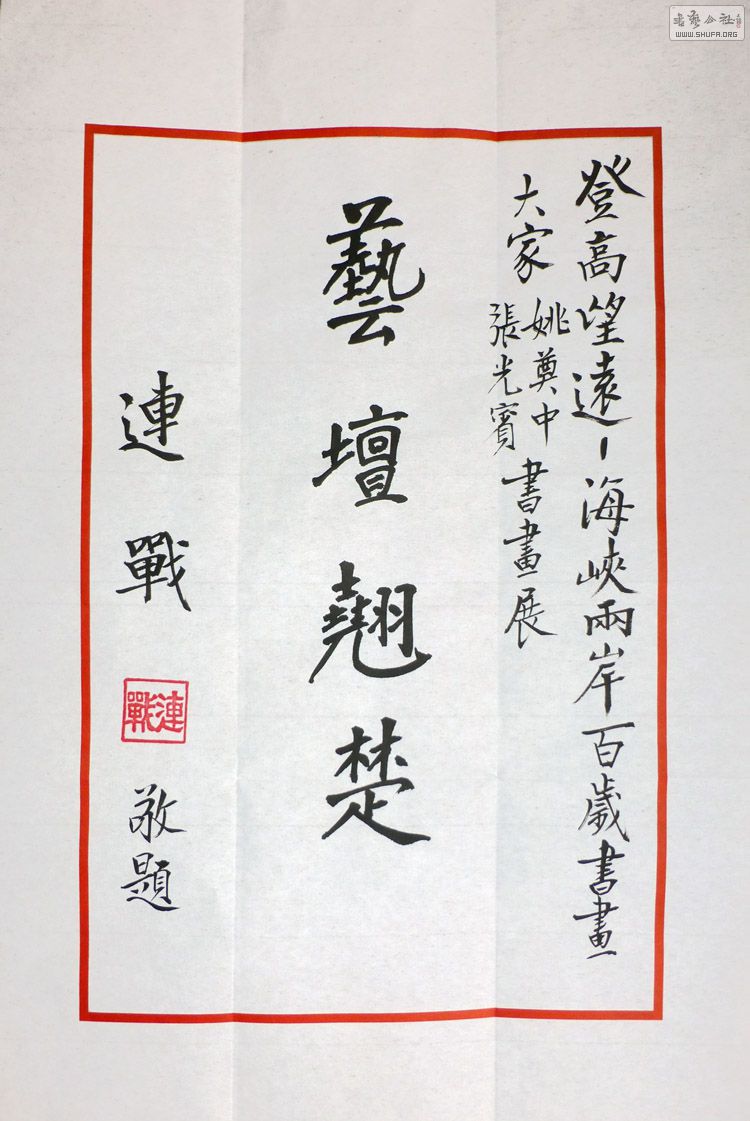 登高望遠－海峽兩岸百歲書畫
大家姚奠中張光賓書畫展
藝壇翹楚
連戰
連戰
敬題
書藝公社
WWW.SHUFA.ORG